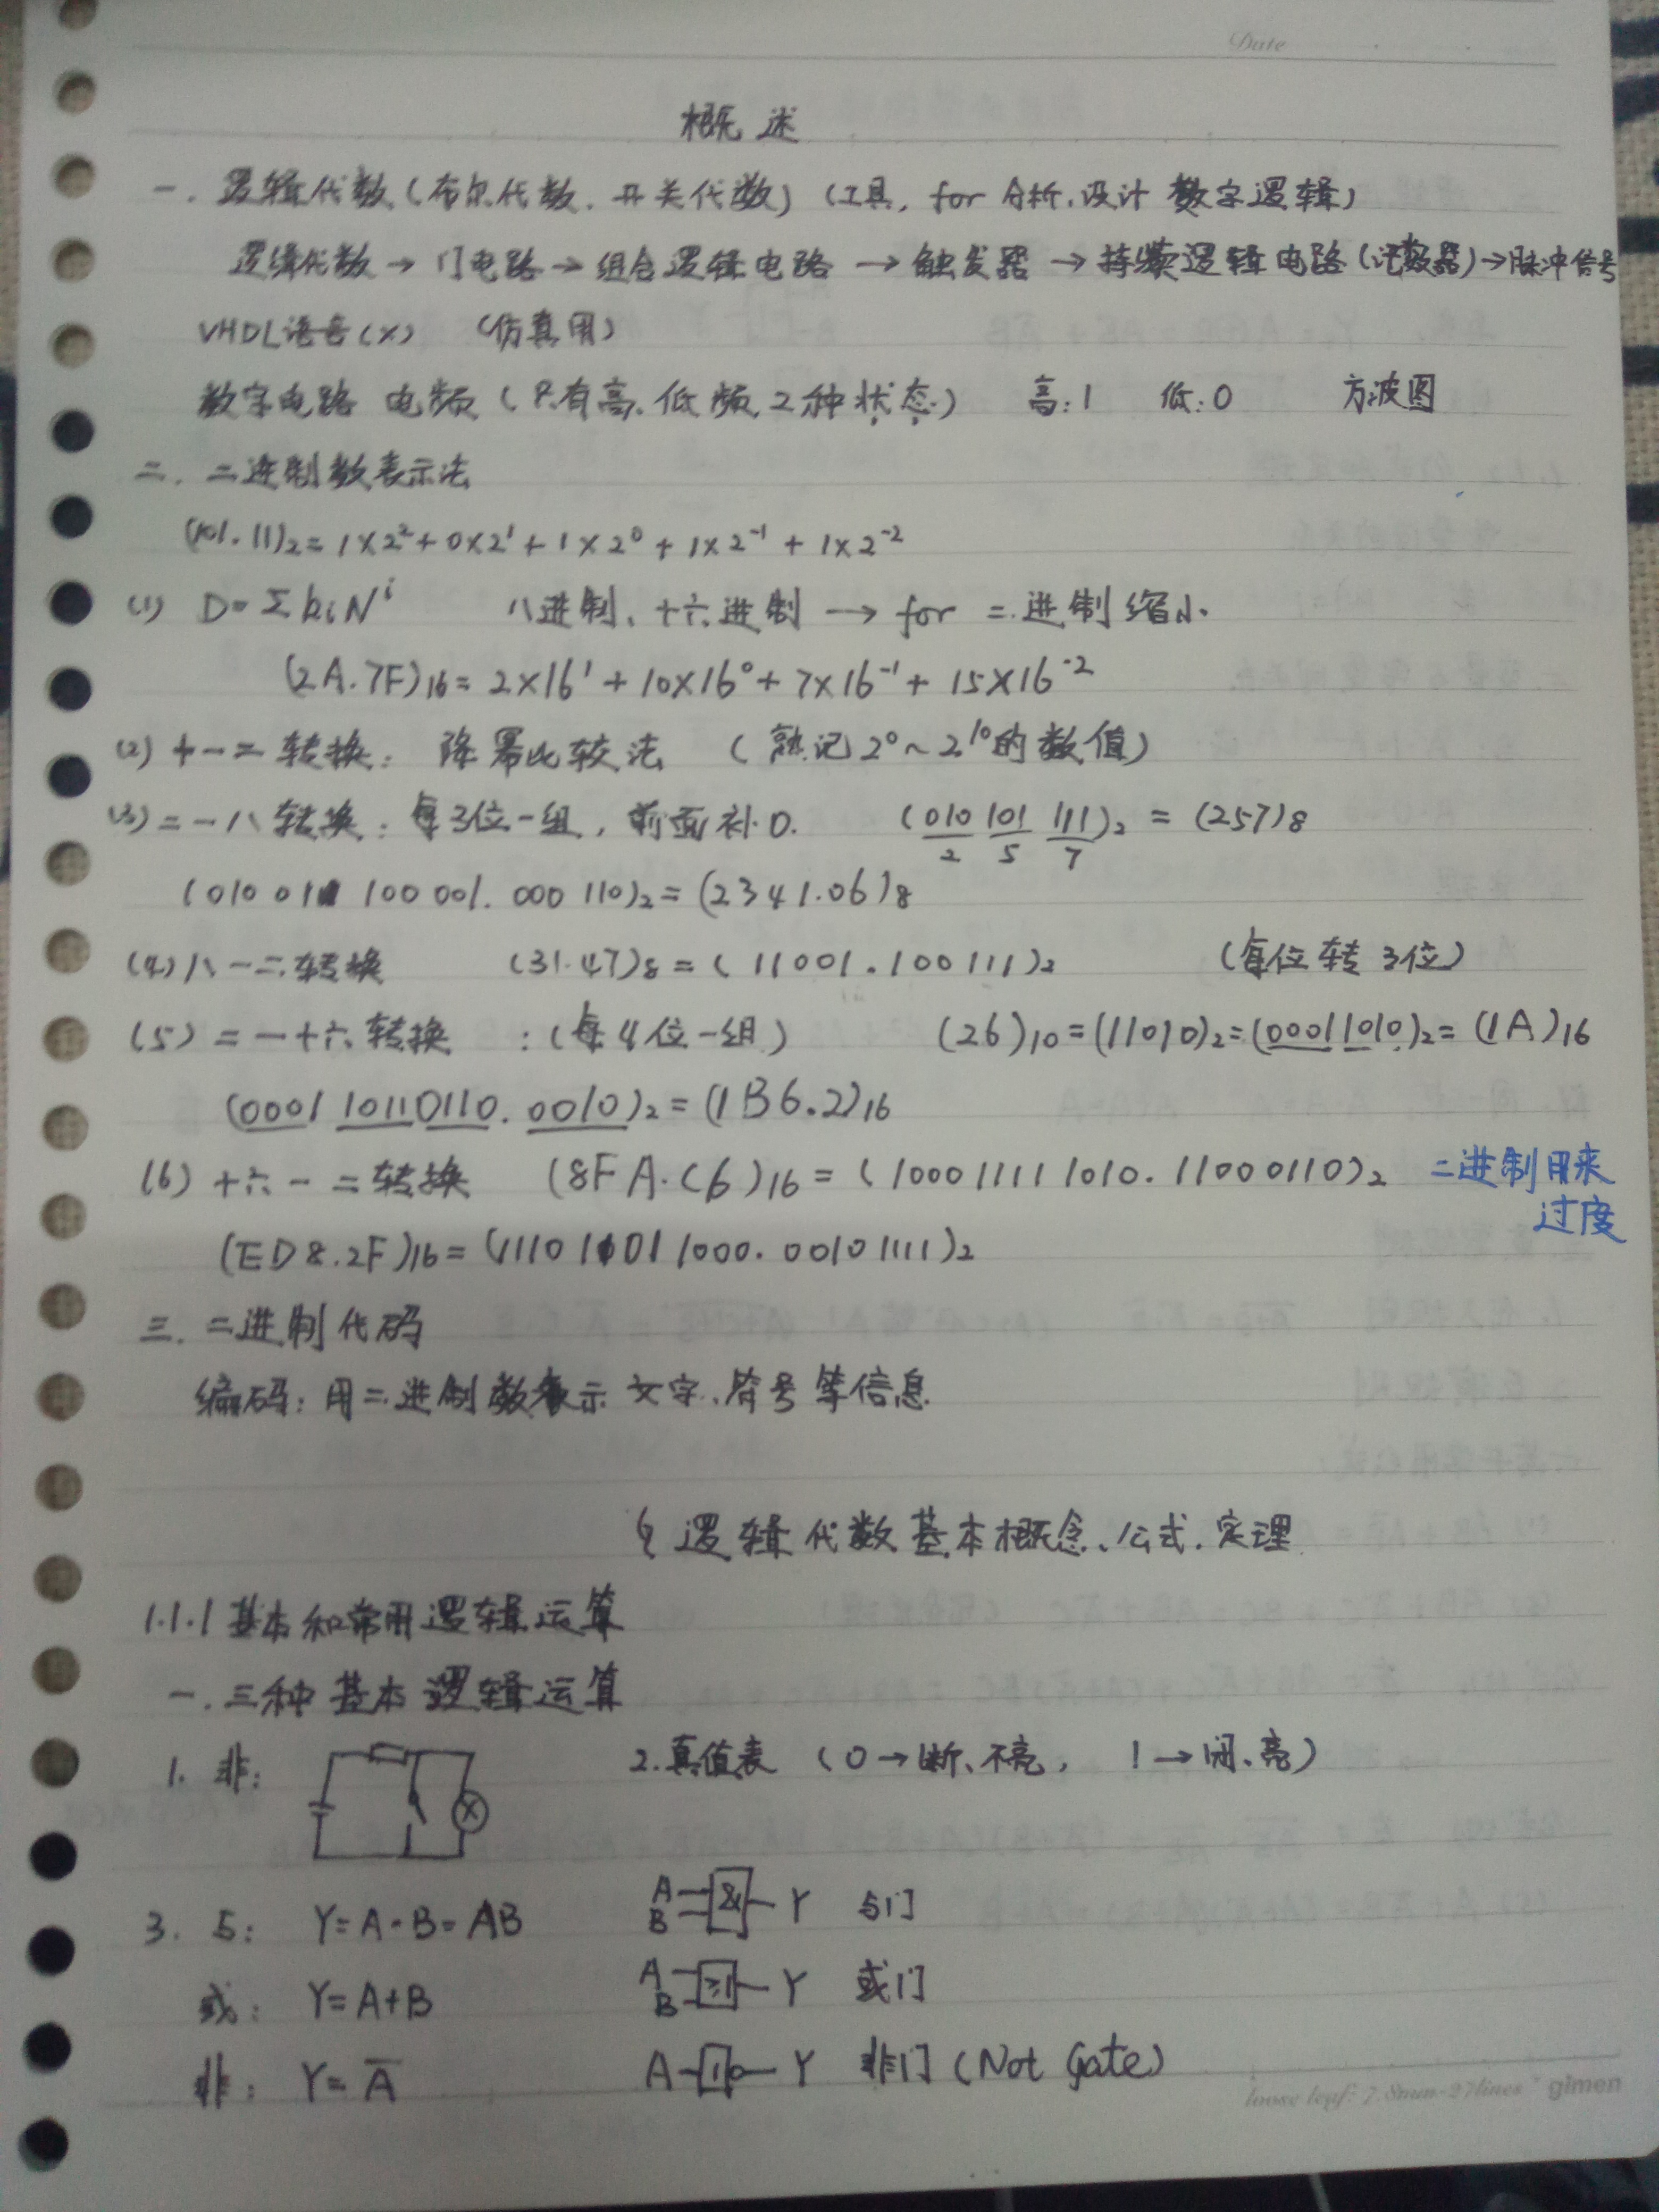 Date
概述
一. 逻辑代数(布尔代数、开关代数) (工具, for 分析、设计 数字逻辑)
逻辑代数→门电路→组合逻辑电路→触发器→持续逻辑电路(计数器)→脉冲信号
VHDL语言(×) (仿真用)
数字电路 电频 (只有高、低频, 2种状态) 高:1 低:0 方波图
二. 二进制数表示法
(101.11)₂=1×2²+0×2¹+1×2⁰+1×2⁻¹+1×2⁻²
(1) D=ΣkiNⁱ 八进制、十六进制→for 二进制缩小
(2A.7F)₁₆=2×16¹+10×16⁰+7×16⁻¹+15×16⁻²
(2) 十一二转换: 降幂比较法 (熟记2⁰~2¹⁰的数值)
(3) 二一八转换: 每3位一组, 前面补0. (010 101 111)₂=(257)₈
2 5 7
(010 011 100 001. 000 110)₂=(2341.06)₈
(4) 八一二转换 (31.47)₈=(11001.100111)₂ (每位转3位)
(5) 二一十六转换 :(每4位一组) (26)₁₀=(11010)₂=(00011010)₂=(1A)₁₆
(0001 10110110. 0010)₂=(1B6.2)₁₆
(6) 十六一二转换 (8FA.C6)₁₆=(100011111010.11000110)₂ 二进制用来
过度
(ED8.2F)₁₆=(111011011000.00101111)₂
三. 二进制代码
编码: 用二进制数表示文字、符号等信息
§ 逻辑代数基本概念、公式、定理
1.1.1 基本和常用逻辑运算
一. 三种基本逻辑运算
1. 非: 2. 真值表 (0→断、不亮, 1→闭、亮)
3. 与: Y=A·B=AB A B & Y 与门
或: Y=A+B A B ≥1 Y 或门
非: Y=A̅ A 1 Y 非门(Not Gate)
loose leaf: 7.8mm-27lines gimen